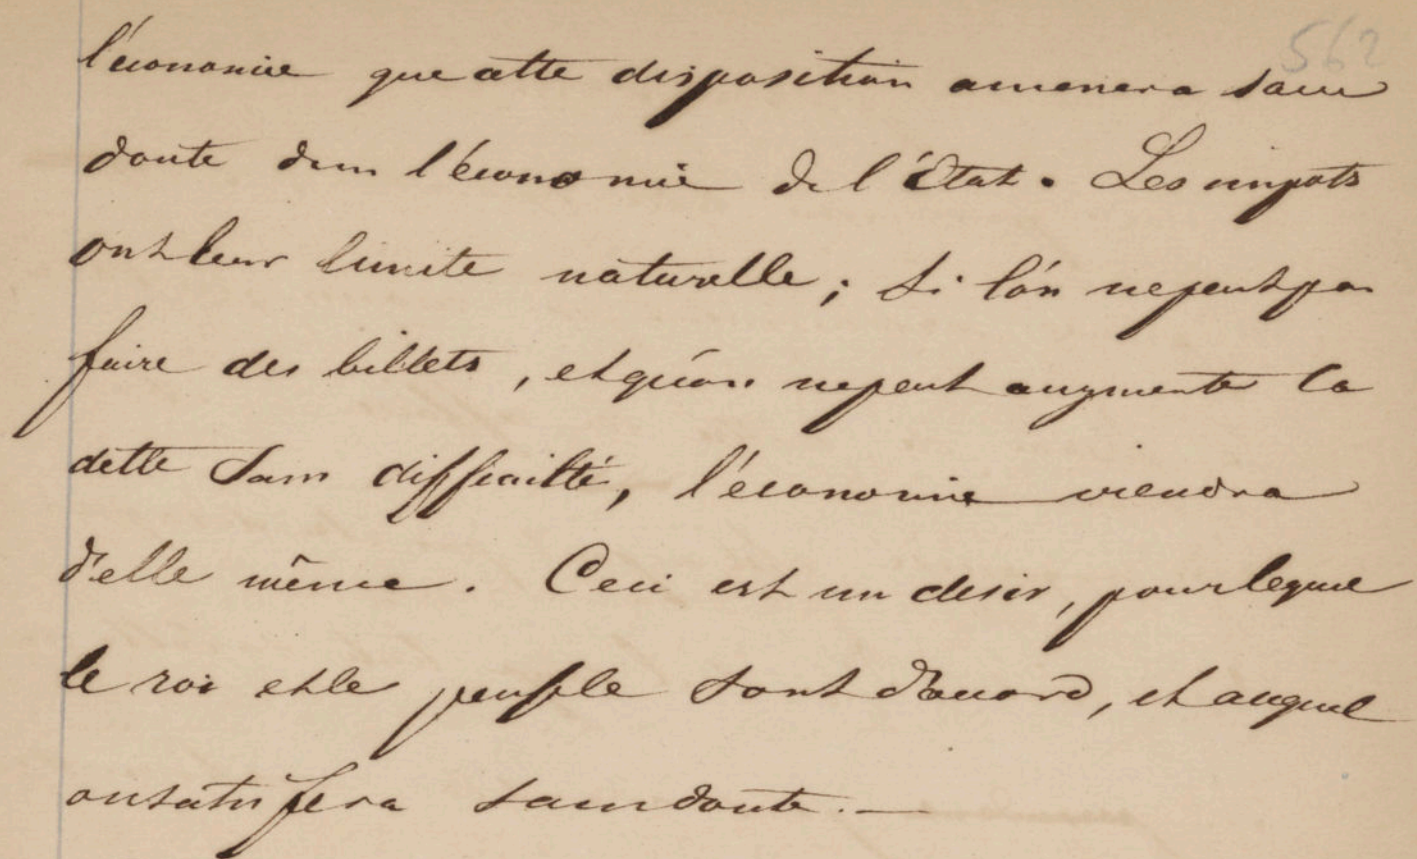 562
l'économie que cette disposition amenera sans
doute dans l'économie de l'État. Les impots
ont leur limite naturelle; si l'on ne peut pas
faire des billets, et qu'on ne peut augmenter la
dette sans difficulté, l'économie viendra
d'elle même. Ceci est un desir, pour lequel
le roi et le peuple sont d'accord, et auquel
on satisfera sans doute.—